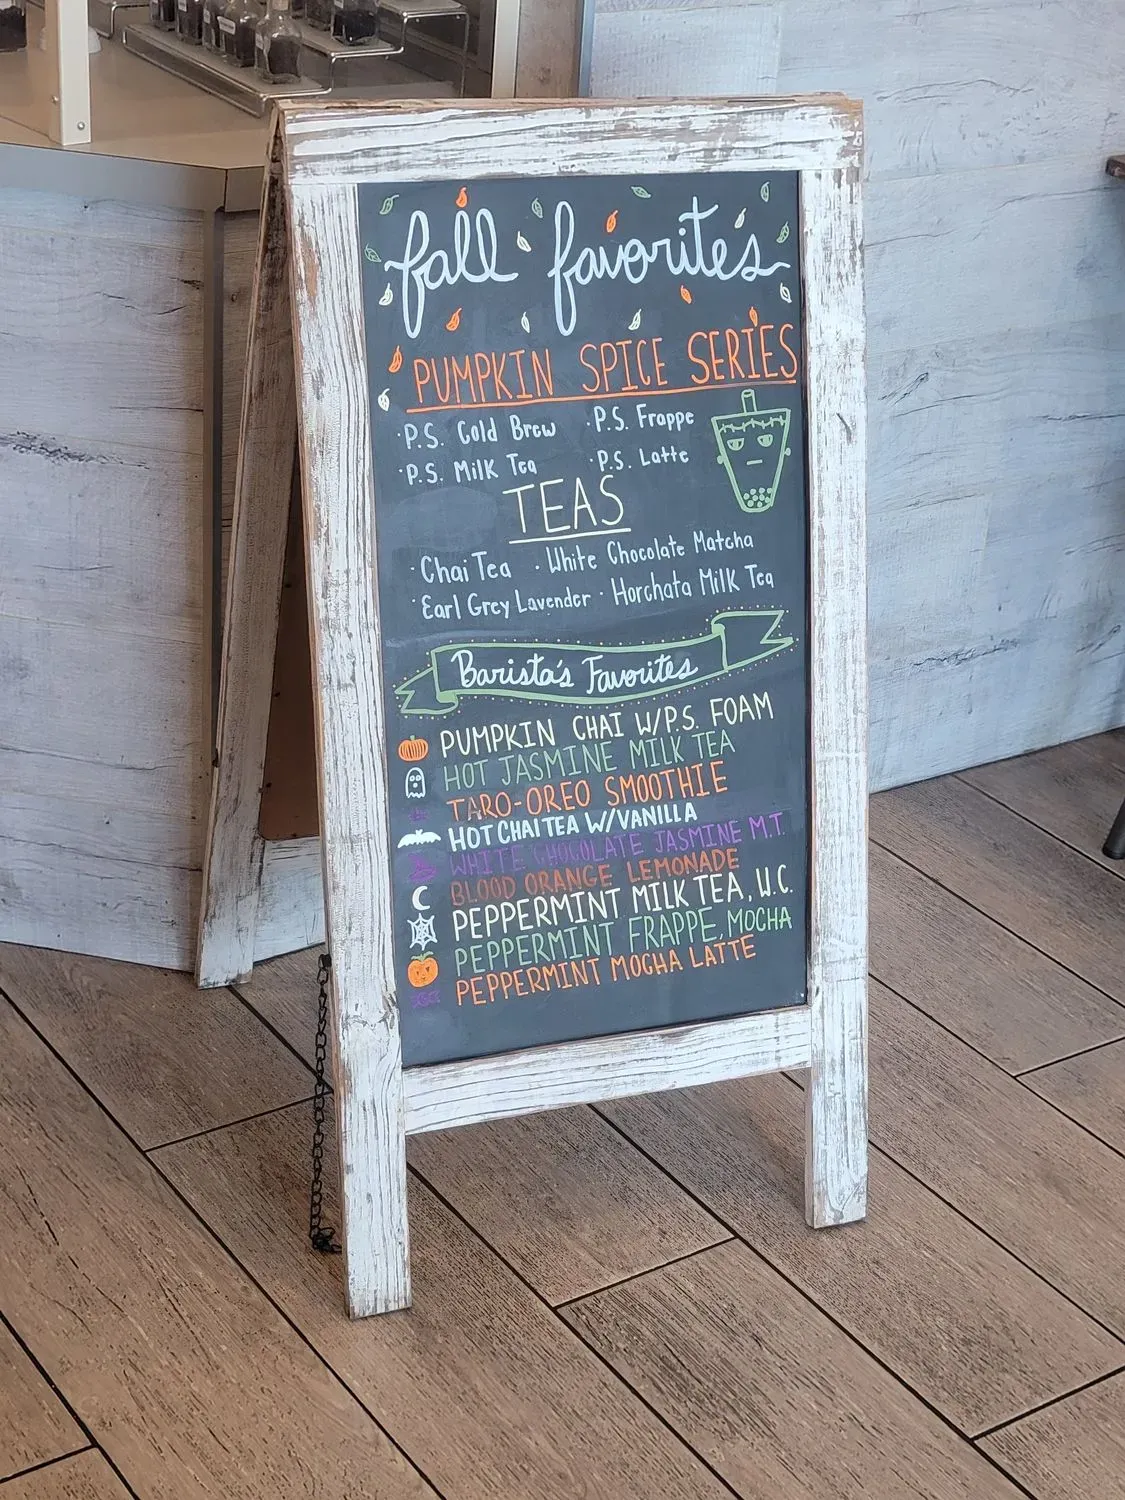 fall favorite's
PUMPKIN SPICE SERIES
·P.S. Cold Brew ·P.S. Frappe
·P.S. Milk Tea ·P.S. Latte
TEAS
·Chai Tea ·White Chocolate Matcha
·Earl Grey Lavender ·Horchata Milk Tea
Barista's Favorites
PUMPKIN CHAI W/P.S. FOAM
HOT JASMINE MILK TEA
TARO-OREO SMOOTHIE
HOT CHAI TEA W/VANILLA
WHITE CHOCOLATE JASMINE M.T.
BLOOD ORANGE LEMONADE
PEPPERMINT MILK TEA, W.C.
PEPPERMINT FRAPPE, MOCHA
PEPPERMINT MOCHA LATTE